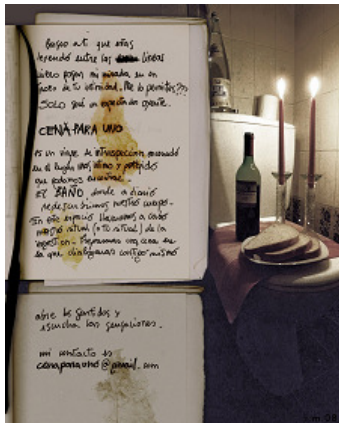 Busco a ti que estas
leyendo entre las líneas
quiero posar mi mirada en un
trozo de tu intimidad. Me lo permites???
SOLO seré un espectador oyente.
CENA PARA UNO
es un viaje de introspección
en el lugar más íntimo y
que podamos encontrar.
El BAÑO donde a diario
redescubrimos nuestro cuerpo.
En este espacio llevaremos a cabo
nuestro ritual (o tu ritual) de la
ingestion. Prepararemos una cena en
la que dialogaras contigo mismo
abre los sentidos y
escucha las sensaciones.
mi contacto es
cenaparauno@gmail.com